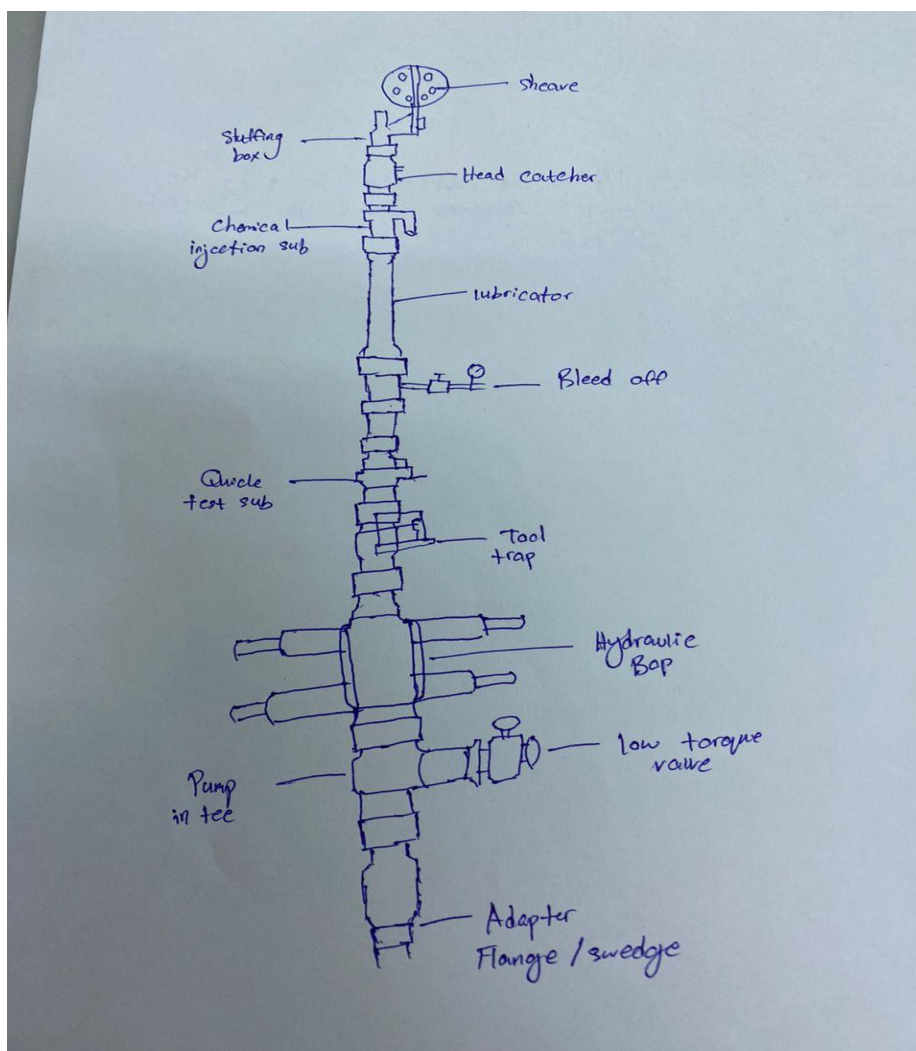 sheave
Stuffing
box
Head catcher
Chemical
injection sub
lubricator
Bleed off
Quick
test sub
Tool
trap
Hydraulic
Bop
low torque
valve
Pump
in tee
Adapter
Flange / swedge